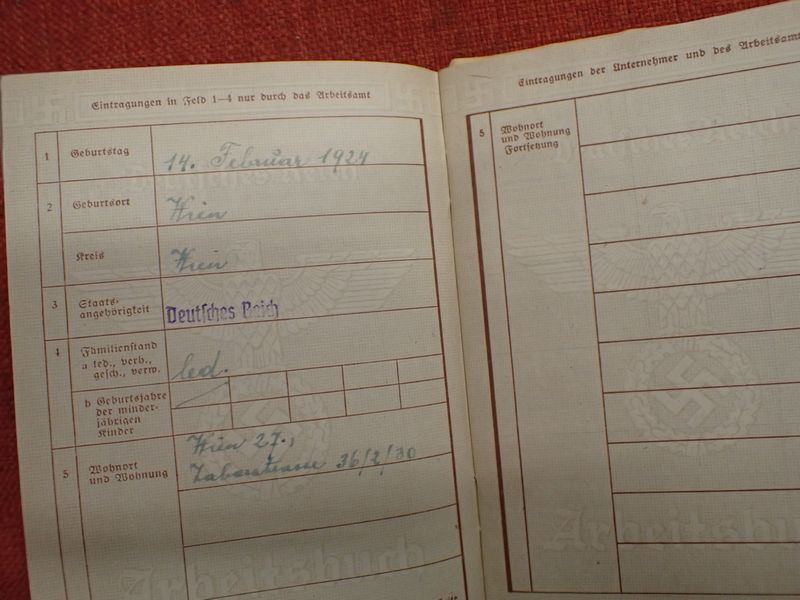 Eintragungen in Feld 1—4 nur durch das Arbeitsamt
1 Geburtstag 14. Februar 1924
2 Geburtsort Wien
Kreis Wien
3 Staats-
angehörigkeit Deutsches Reich
4 Familienstand
a led., verh.,
gesch., verw. led.
b Geburtsjahre
der minder-
jährigen
Kinder
5 Wohnort
und Wohnung
Wien 27.,
36/2/30
Arbeitsbuch
Eintragungen der Unternehmer und des Arbeitsamt
5 Wohnort
und Wohnung
Fortsetzung
Deutsches Reich
Arbeitsbuch